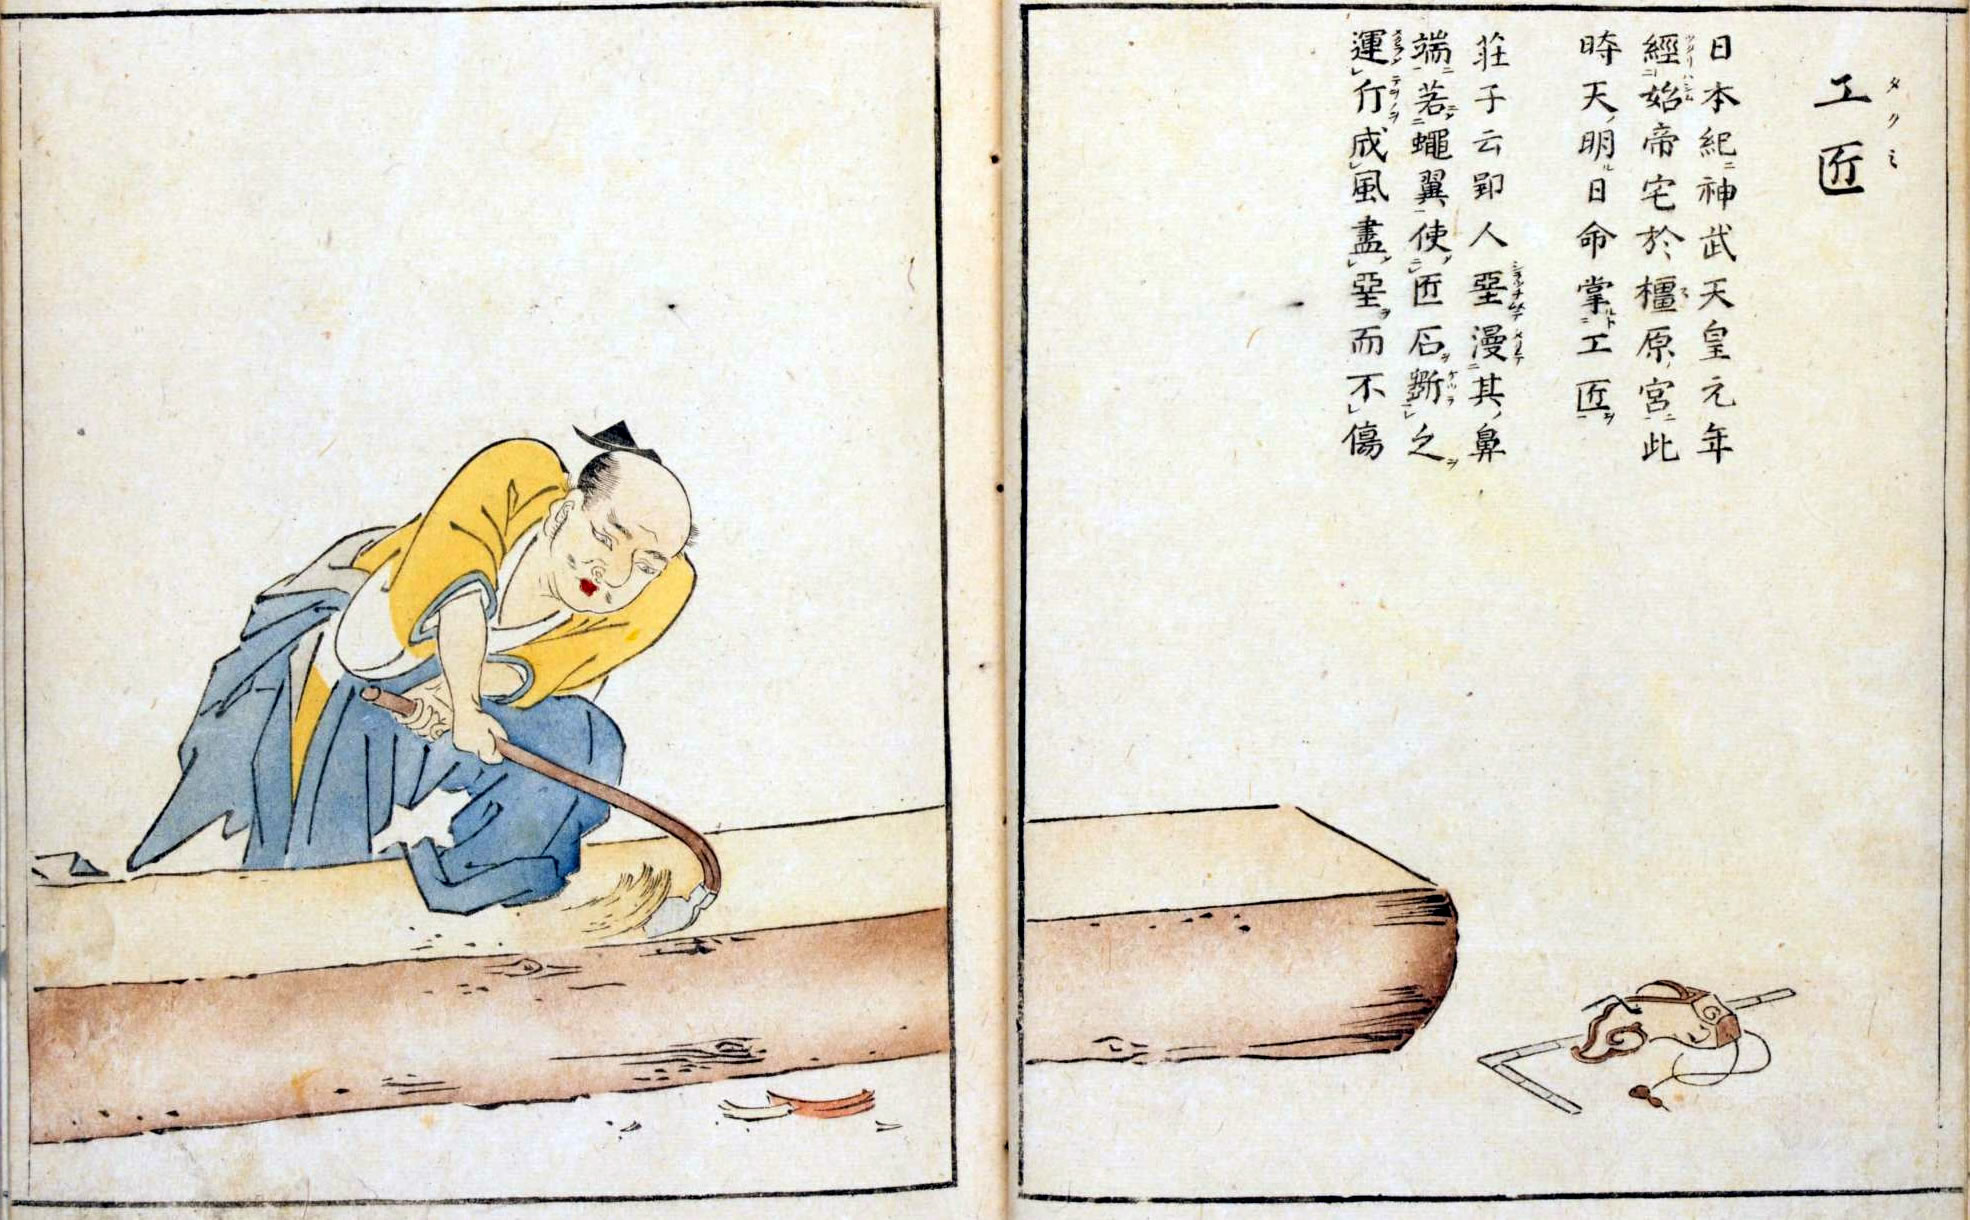 工匠
タクミ
日本紀ニ神武天皇元年
經始帝宅於橿原宮ニ此
時天ノ明ル日命掌ルト工匠ヲ
莊子云郢人堊漫其ノ鼻
端ニ若蠅翼使匠石ヲ斲之ヲ
運斤成風盡堊ヲ而不傷